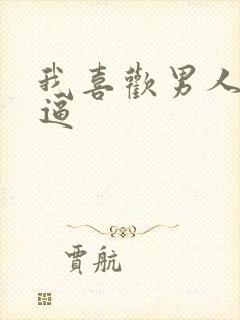 我喜歡男人
逼
賈航